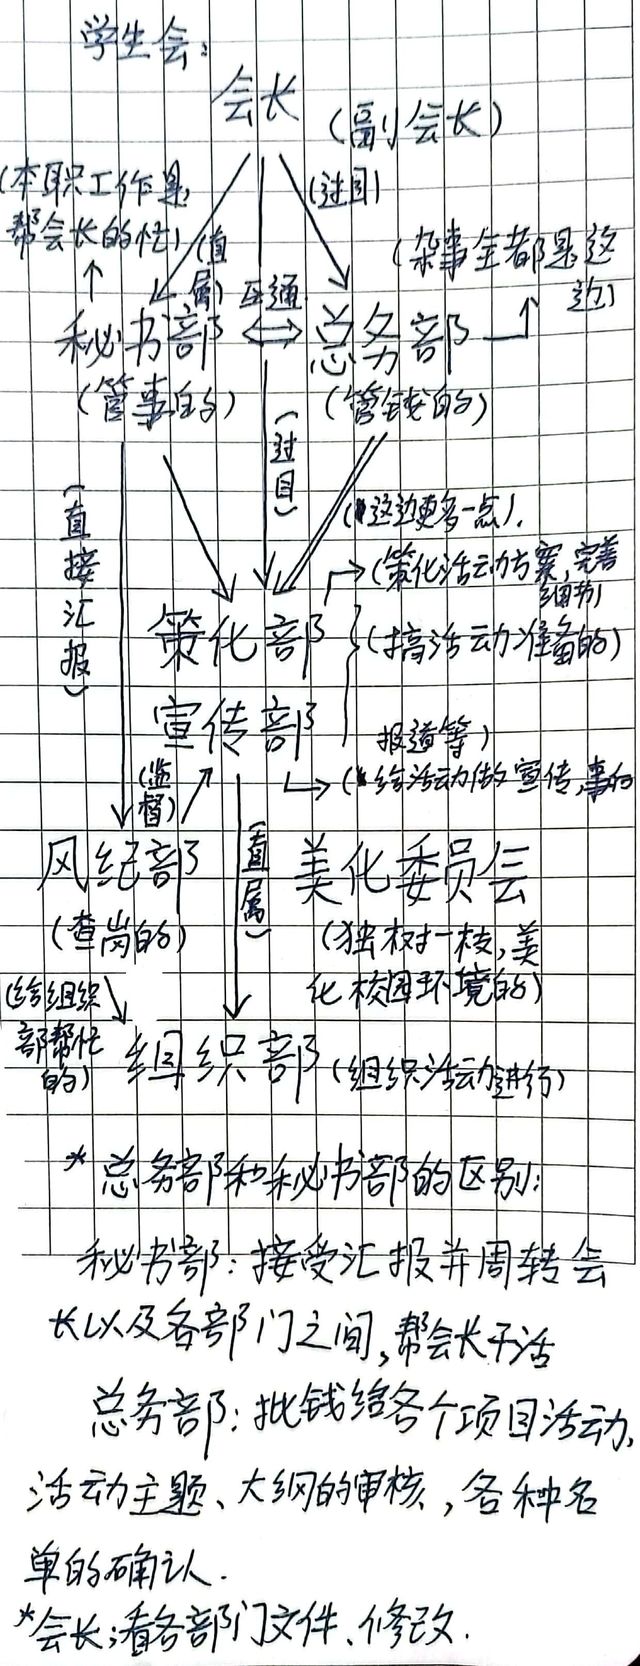 学生会:
会长
(副会长)
(本职工作是,
帮会长的忙)
(直属)
(过目)
(杂事全都是这
边)
互通
秘书部
总务部
(管事的)
(管钱的)
(直接汇报)
(过目)
(这边更多一点).
(策化活动方案,完善
细节)
策化部
(搞活动准备的)
宣传部
报道等)
(给活动做宣传,事向
(监督)
风纪部
(直属)
美化委员会
(查岗的)
(独树一枝,美
化校园环境的)
(给组织
部帮忙
的)
组织部
(组织活动进行)
*总务部和秘书部的区别:
秘书部:接受汇报并周转会
长以及各部门之间,帮会长干活
总务部:批钱给各个项目活动,
活动主题、大纲的审核,各种名
单的确认.
*会长:看各部门文件、修改.